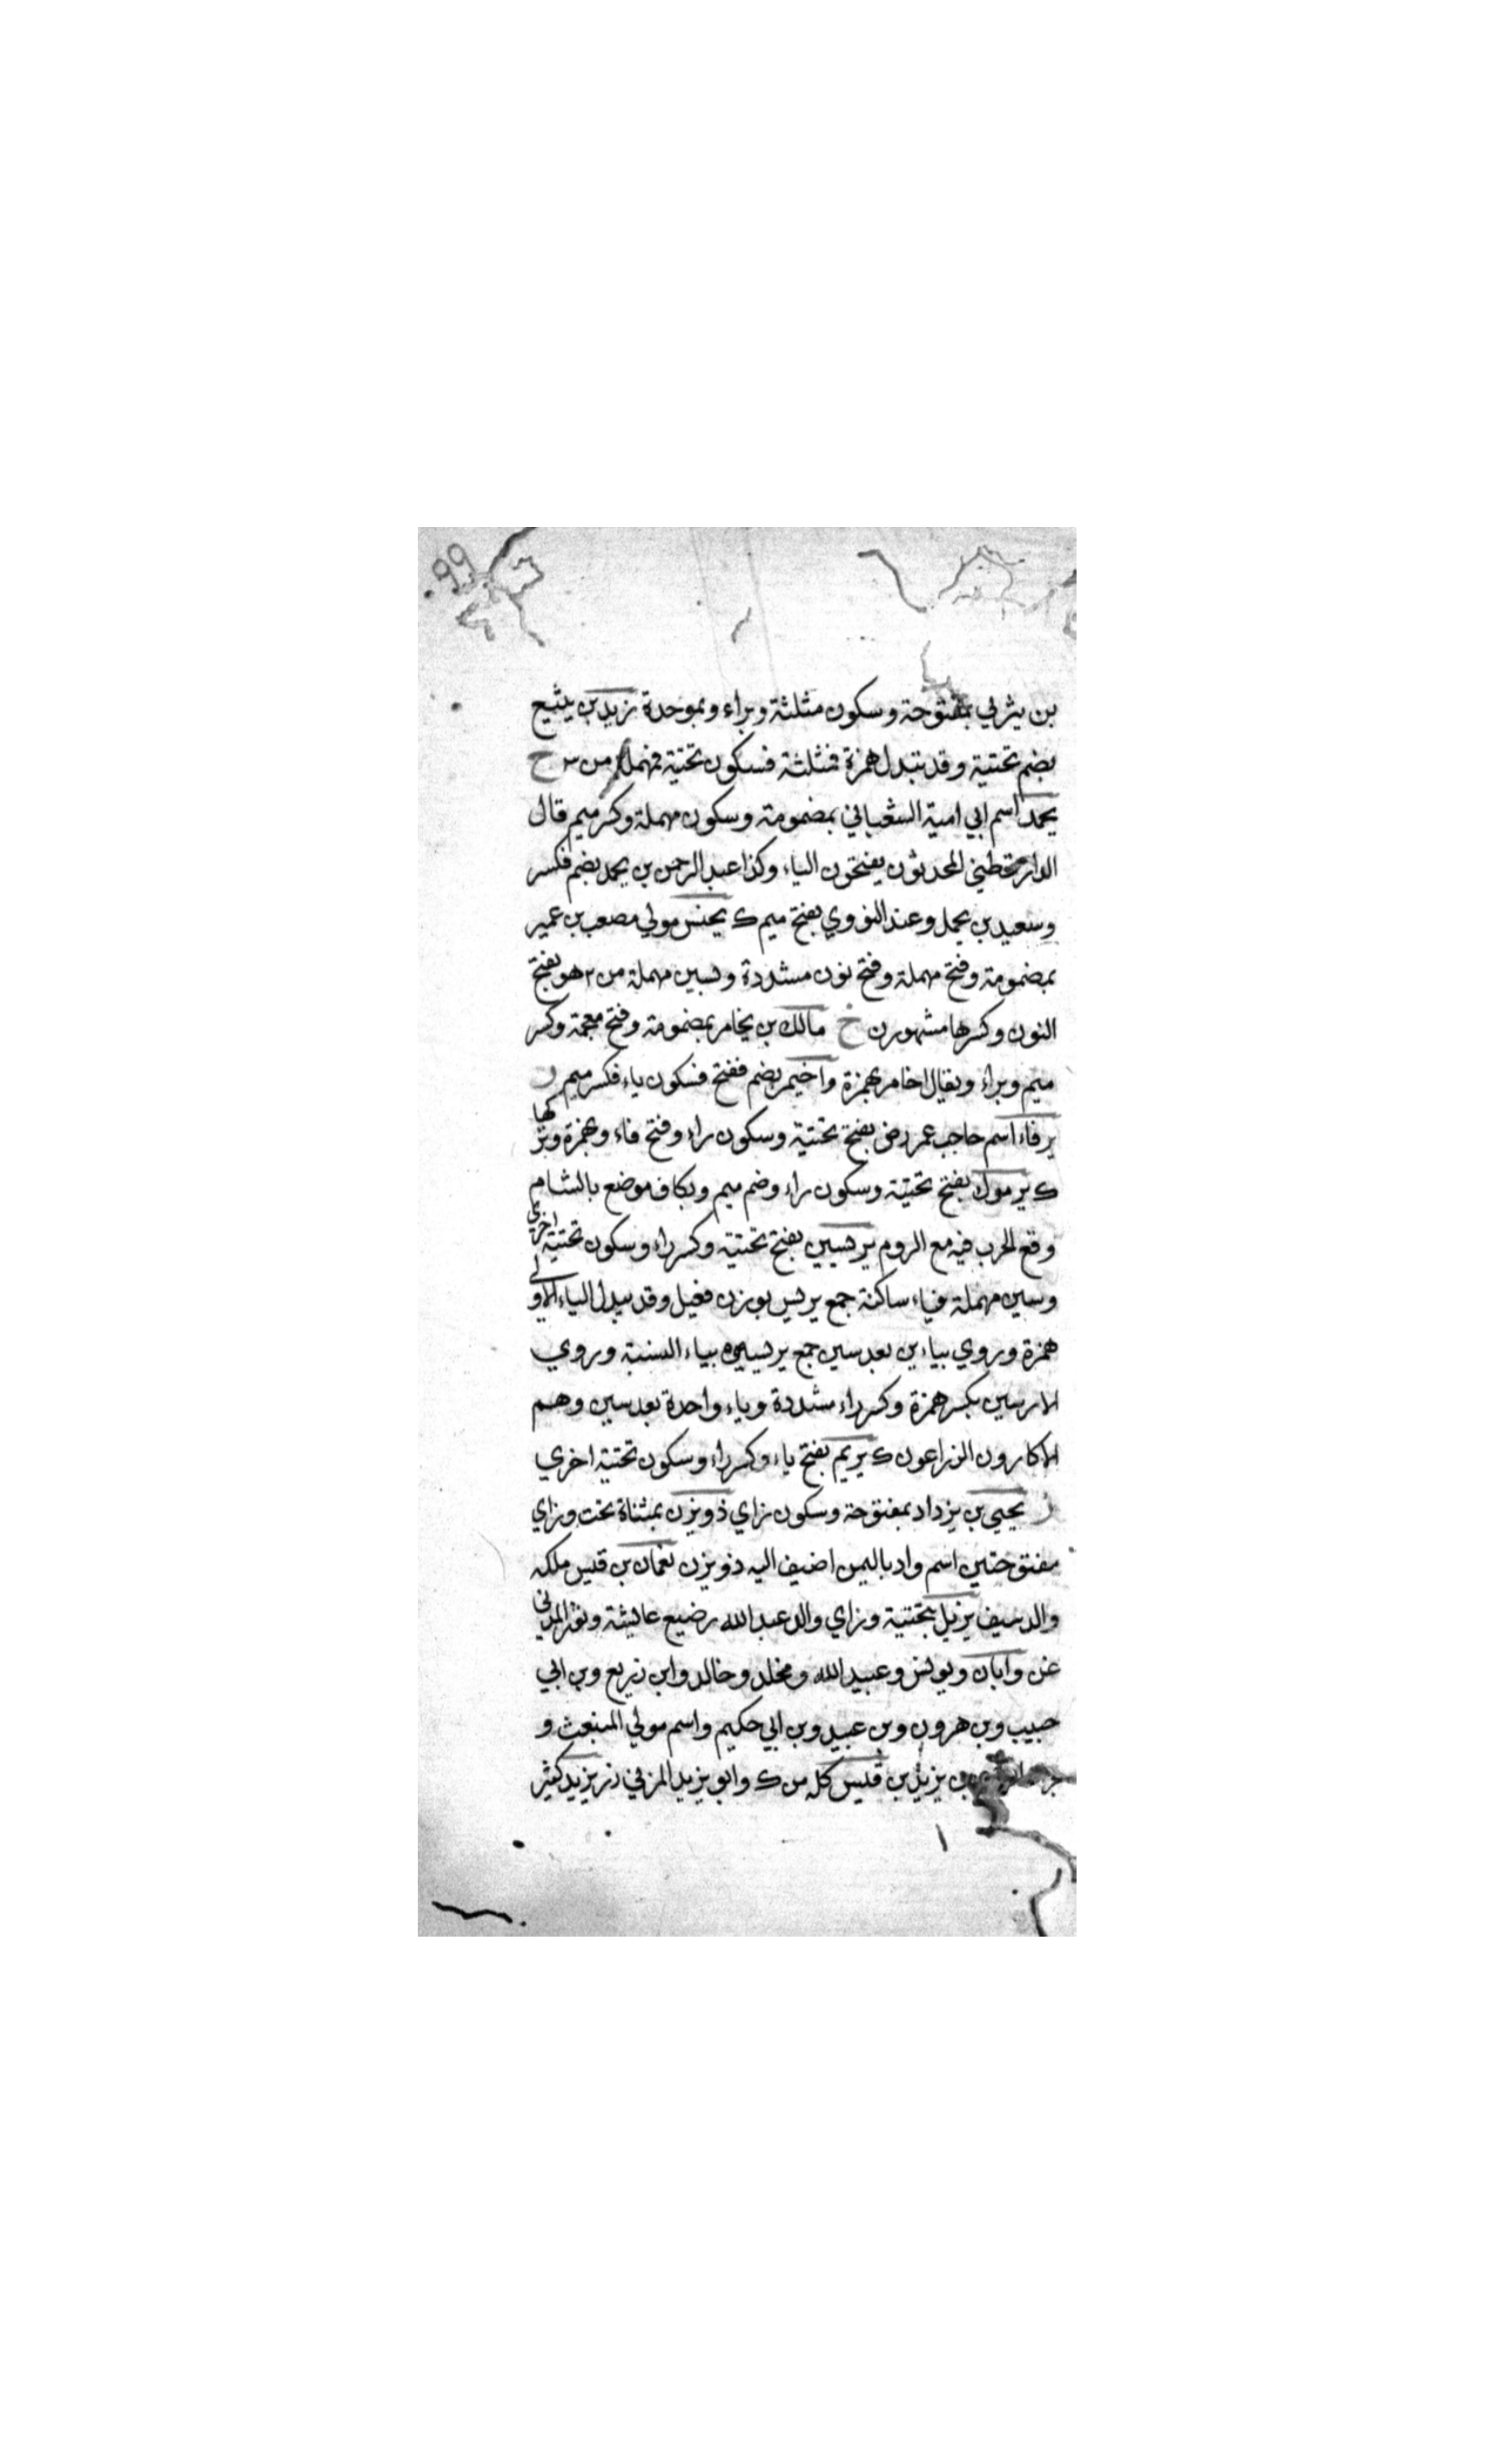 99
بن يثربي بمفتوحة وسكون مثلثة وبراء وبموحدة زيد بن يثيع
بضم تحتية وقد تبدل همزة فمثلثة فسكون تحتية فمهملة من ح
يحمد اسم ابي امية الشعباني بمضمومة وسكون مهملة وكسر ميم قال
الدارقطني المحدثون يفتحون الياء وكذا عبد الرحمن بن يحمد بضم فكسر
وسعيد بن يحمد وعند النووي بفتح ميم ك يحنس مولي مصعب بن عمير
بمضمومة وفتح مهملة وفتح نون مشددة وبسين مهملة من هو بفتح
النون وكسرها مشهورن خ مالك بن يخامر بمضمومة وفتح معجمة وكسر
ميم وبراء ويقال اخامر بهمزة واخيمر بضم ففتح فسكون ياء فكسر ميم ر
يرفاء اسم حاجب عمر رض بفتح تحتية وسكون راء وفتح فاء وهمزة وتركها
ك يرموك بفتح تحتية وسكون راء وضم ميم وبكاف موضع بالشام
وقع الحرب فيه مع الروم يريسيين بفتح تحتية وكسر راء وسكون تحتية اخري
وسين مهملة فياء ساكنة جمع يريس بوزن فعيل وقد يبدل الياء الاولي
همزة وروي بياءين بعد سين جمع يريسيين بياء النسبة وروي
الاريسين بكسر همزة وكسر راء مشددة وياء واحدة بعد سين وهم
الاكارون الزراعون ك يريم بفتح ياء وكسر راء وسكون تحتية اخري
ز يحيي بن يزداد بمفتوحة وسكون زاي ذو يزن بمثناة تحت وزاي
مفتوحتين اسم واد باليمن اضيف اليه ذو يزن نعمان بن قيس ملكه
والد سيف يزيد بتحتية وزاي والد عبد الله رضيع عائشة وثور المدني
عن وابان ويونس وعبيد الله ومخلد وخالد وابن زريع وبن ابي
حبيب وبن هرون وبن عبيد وبن ابي حكيم واسم مولي المنبعث و
يزيد بن قيس كله من ك وابو يزيد المزني نر يزيد كثير